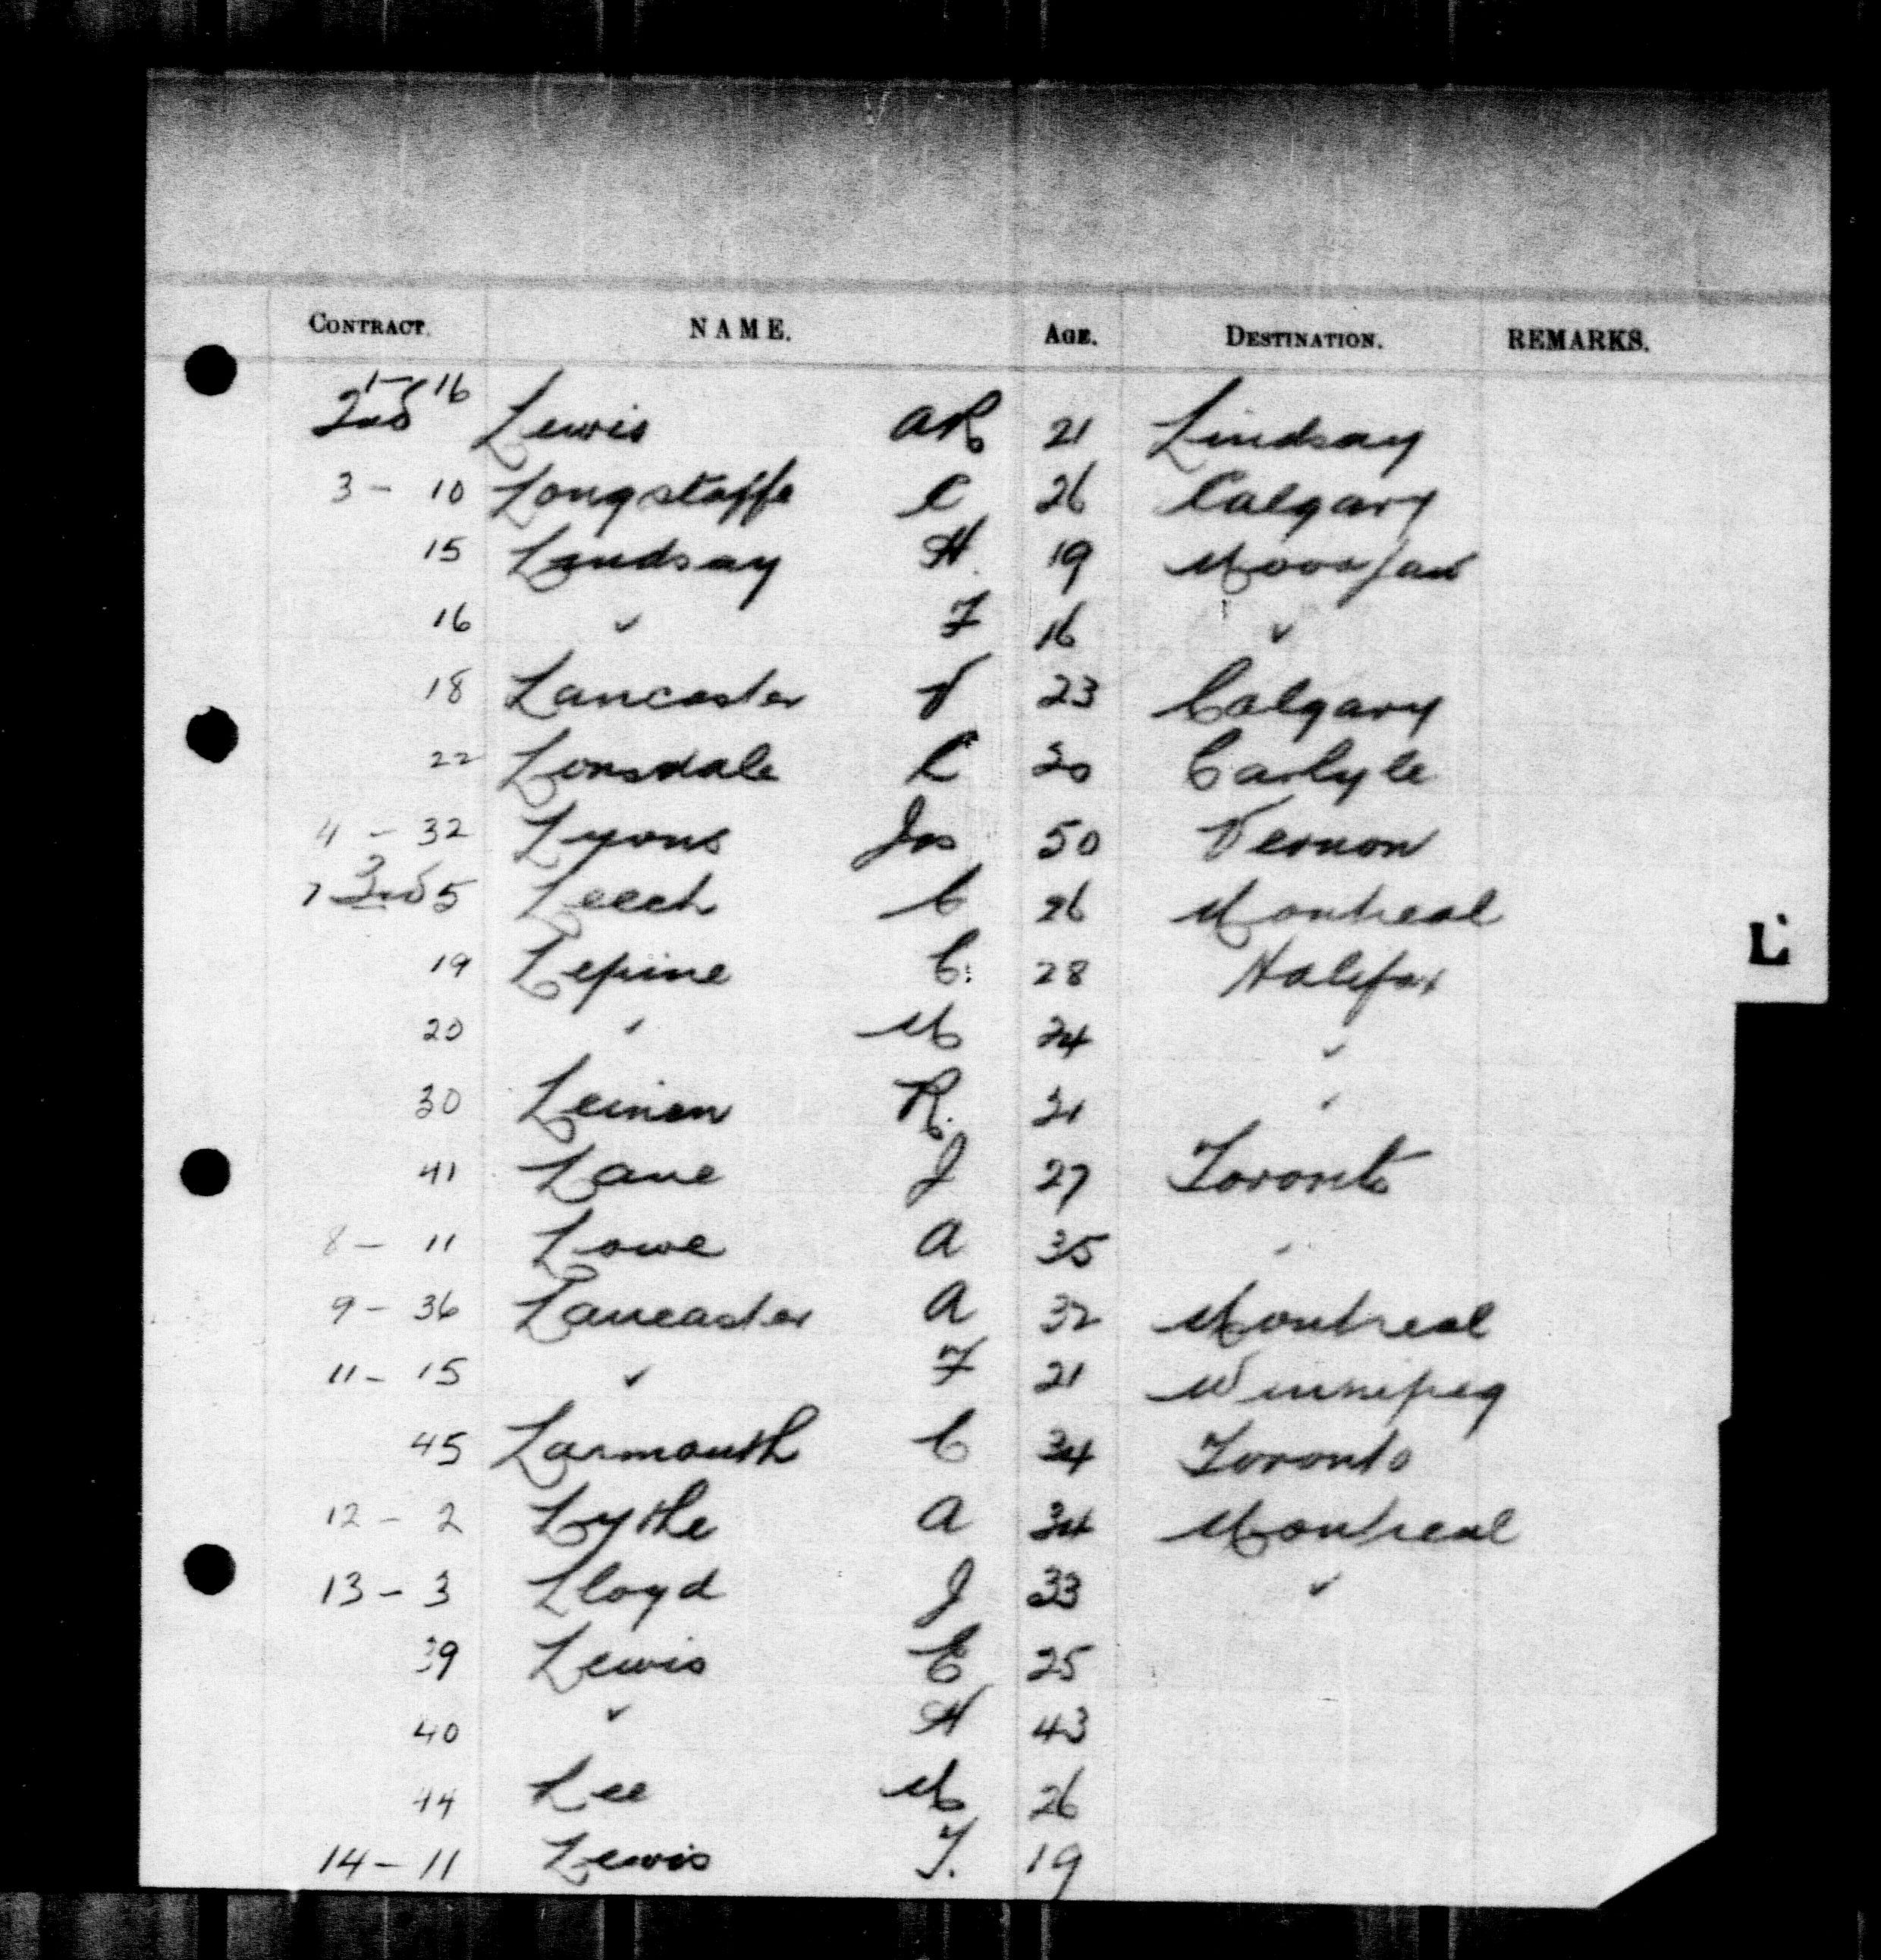 CONTRACT. NAME. AGE. DESTINATION. REMARKS.
1 - 16
2nd Lewis AR 21 Lindsay
3 - 10 Longstaffe C 26 Calgary
15 Lindsay H. 19 Moosejaw
16 " F 16 "
18 Lancaster V 23 Calgary
22 Lonsdale C 20 Carlyle
4 - 32 Lyons Jas 50 Vernon
7 3rd 5 Leech C 26 Montreal
19 Lepine C. 28 Halifax
20 " M 24 "
30 Leinen R. 31 "
41 Lane J 27 Toronto
8 - 11 Lowe A 35 "
9 - 36 Lancaster A 32 Montreal
11 - 15 " F 21 Winnipeg
45 Larmouth C 34 Toronto
12 - 2 Lythe A 34 Montreal
13 - 3 Lloyd J 33 "
39 Lewis E 25
40 " H 43
44 Lee M 26
14 - 11 Lewis T. 19
L